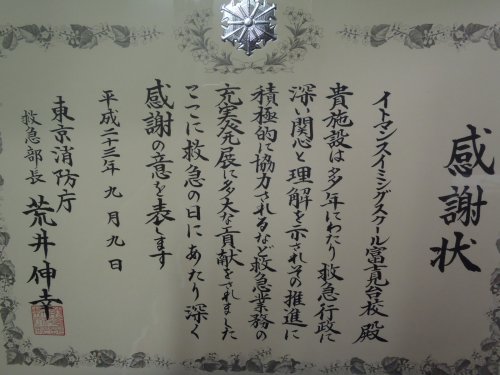 感謝状
イトマンスイミングスクール富士見台校 殿
貴施設は多年にわたり救急行政に
深い関心と理解を示されその推進に
積極的に協力されるなど救急業務の
充実発展に多大な貢献をされました
ここに救急の日にあたり深く
感謝の意を表します
平成二十三年九月九日
東京消防庁
救急部長 荒井伸幸